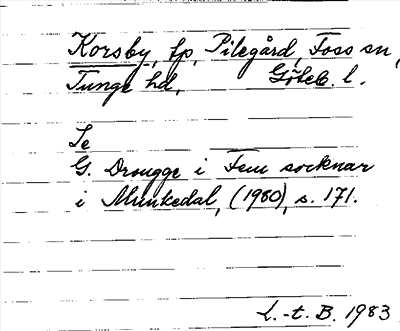 Korsby, fp, Pilegård, Foss sn,
Tunge hd, Göteb. l.
Se
G. Drougge i Fem socknar
i Munkedal, (1980), s. 171.
L.-t. B. 1983